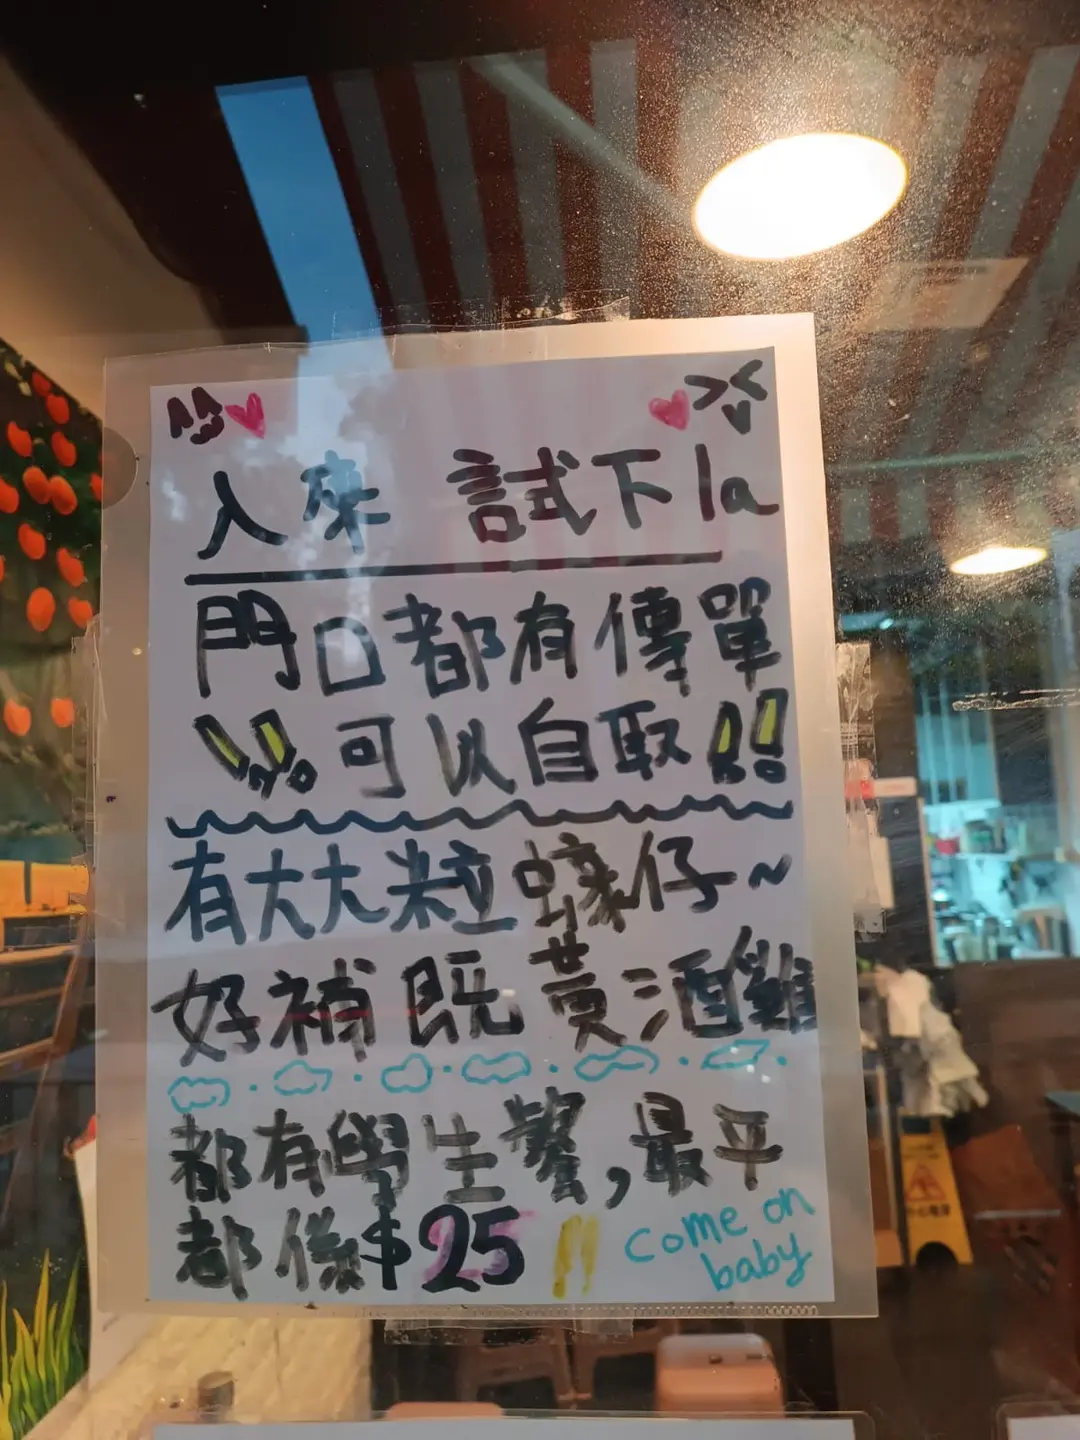 入來 試下la
門口都有傳單
!!可以自取!!
有大大粒蠔仔~
好補既黃酒雞
都有學生餐,最平
都係$25!!
come on
baby